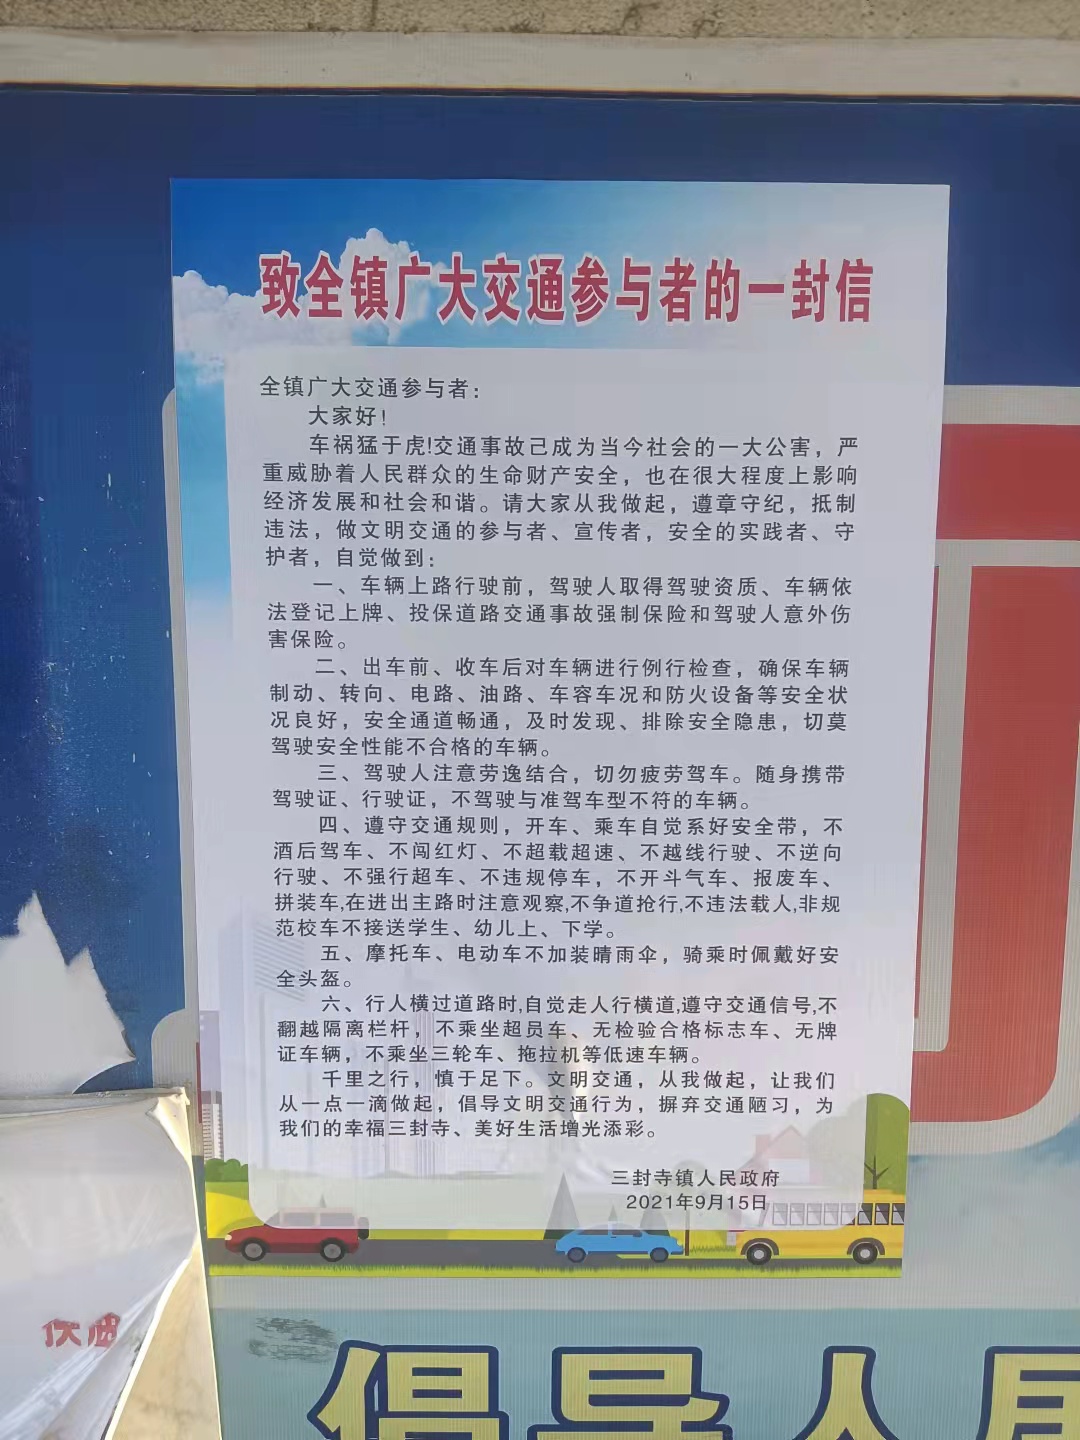 致全镇广大交通参与者的一封信
全镇广大交通参与者：
大家好！
车祸猛于虎!交通事故已成为当今社会的一大公害，严
重威胁着人民群众的生命财产安全，也在很大程度上影响
经济发展和社会和谐。请大家从我做起，遵章守纪，抵制
违法，做文明交通的参与者、宣传者，安全的实践者、守
护者，自觉做到：
一、车辆上路行驶前，驾驶人取得驾驶资质、车辆依
法登记上牌、投保道路交通事故强制保险和驾驶人意外伤
害保险。
二、出车前、收车后对车辆进行例行检查，确保车辆
制动、转向、电路、油路、车容车况和防火设备等安全状
况良好，安全通道畅通，及时发现、排除安全隐患，切莫
驾驶安全性能不合格的车辆。
三、驾驶人注意劳逸结合，切勿疲劳驾车。随身携带
驾驶证、行驶证，不驾驶与准驾车型不符的车辆。
四、遵守交通规则，开车、乘车自觉系好安全带，不
酒后驾车、不闯红灯、不超载超速、不越线行驶、不逆向
行驶、不强行超车、不违规停车，不开斗气车、报废车、
拼装车,在进出主路时注意观察,不争道抢行,不违法载人,非规
范校车不接送学生、幼儿上、下学。
五、摩托车、电动车不加装晴雨伞，骑乘时佩戴好安
全头盔。
六、行人横过道路时,自觉走人行横道,遵守交通信号,不
翻越隔离栏杆，不乘坐超员车、无检验合格标志车、无牌
证车辆，不乘坐三轮车、拖拉机等低速车辆。
千里之行，慎于足下。文明交通，从我做起，让我们
从一点一滴做起，倡导文明交通行为，摒弃交通陋习，为
我们的幸福三封寺、美好生活增光添彩。
三封寺镇人民政府
2021年9月15日
倡导人民